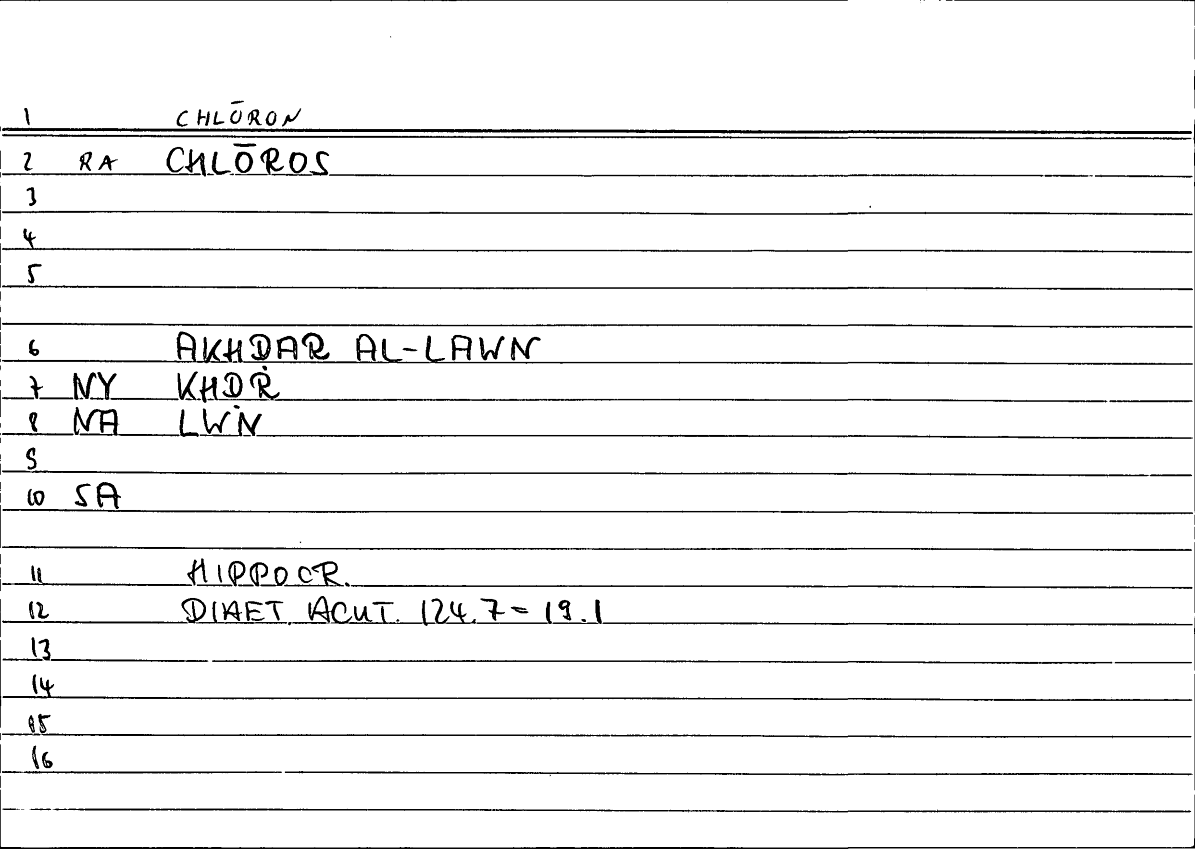 1 CHLŌRON
2 RA CHLŌROS
3
4
5
6 AKHDAR AL-LAWN
7 NY KHDR
8 NA LWN
9
10 SA
11 HIPPOCR.
12 DIAET. ACUT. 124.7 = 19.1
13
14
15
16